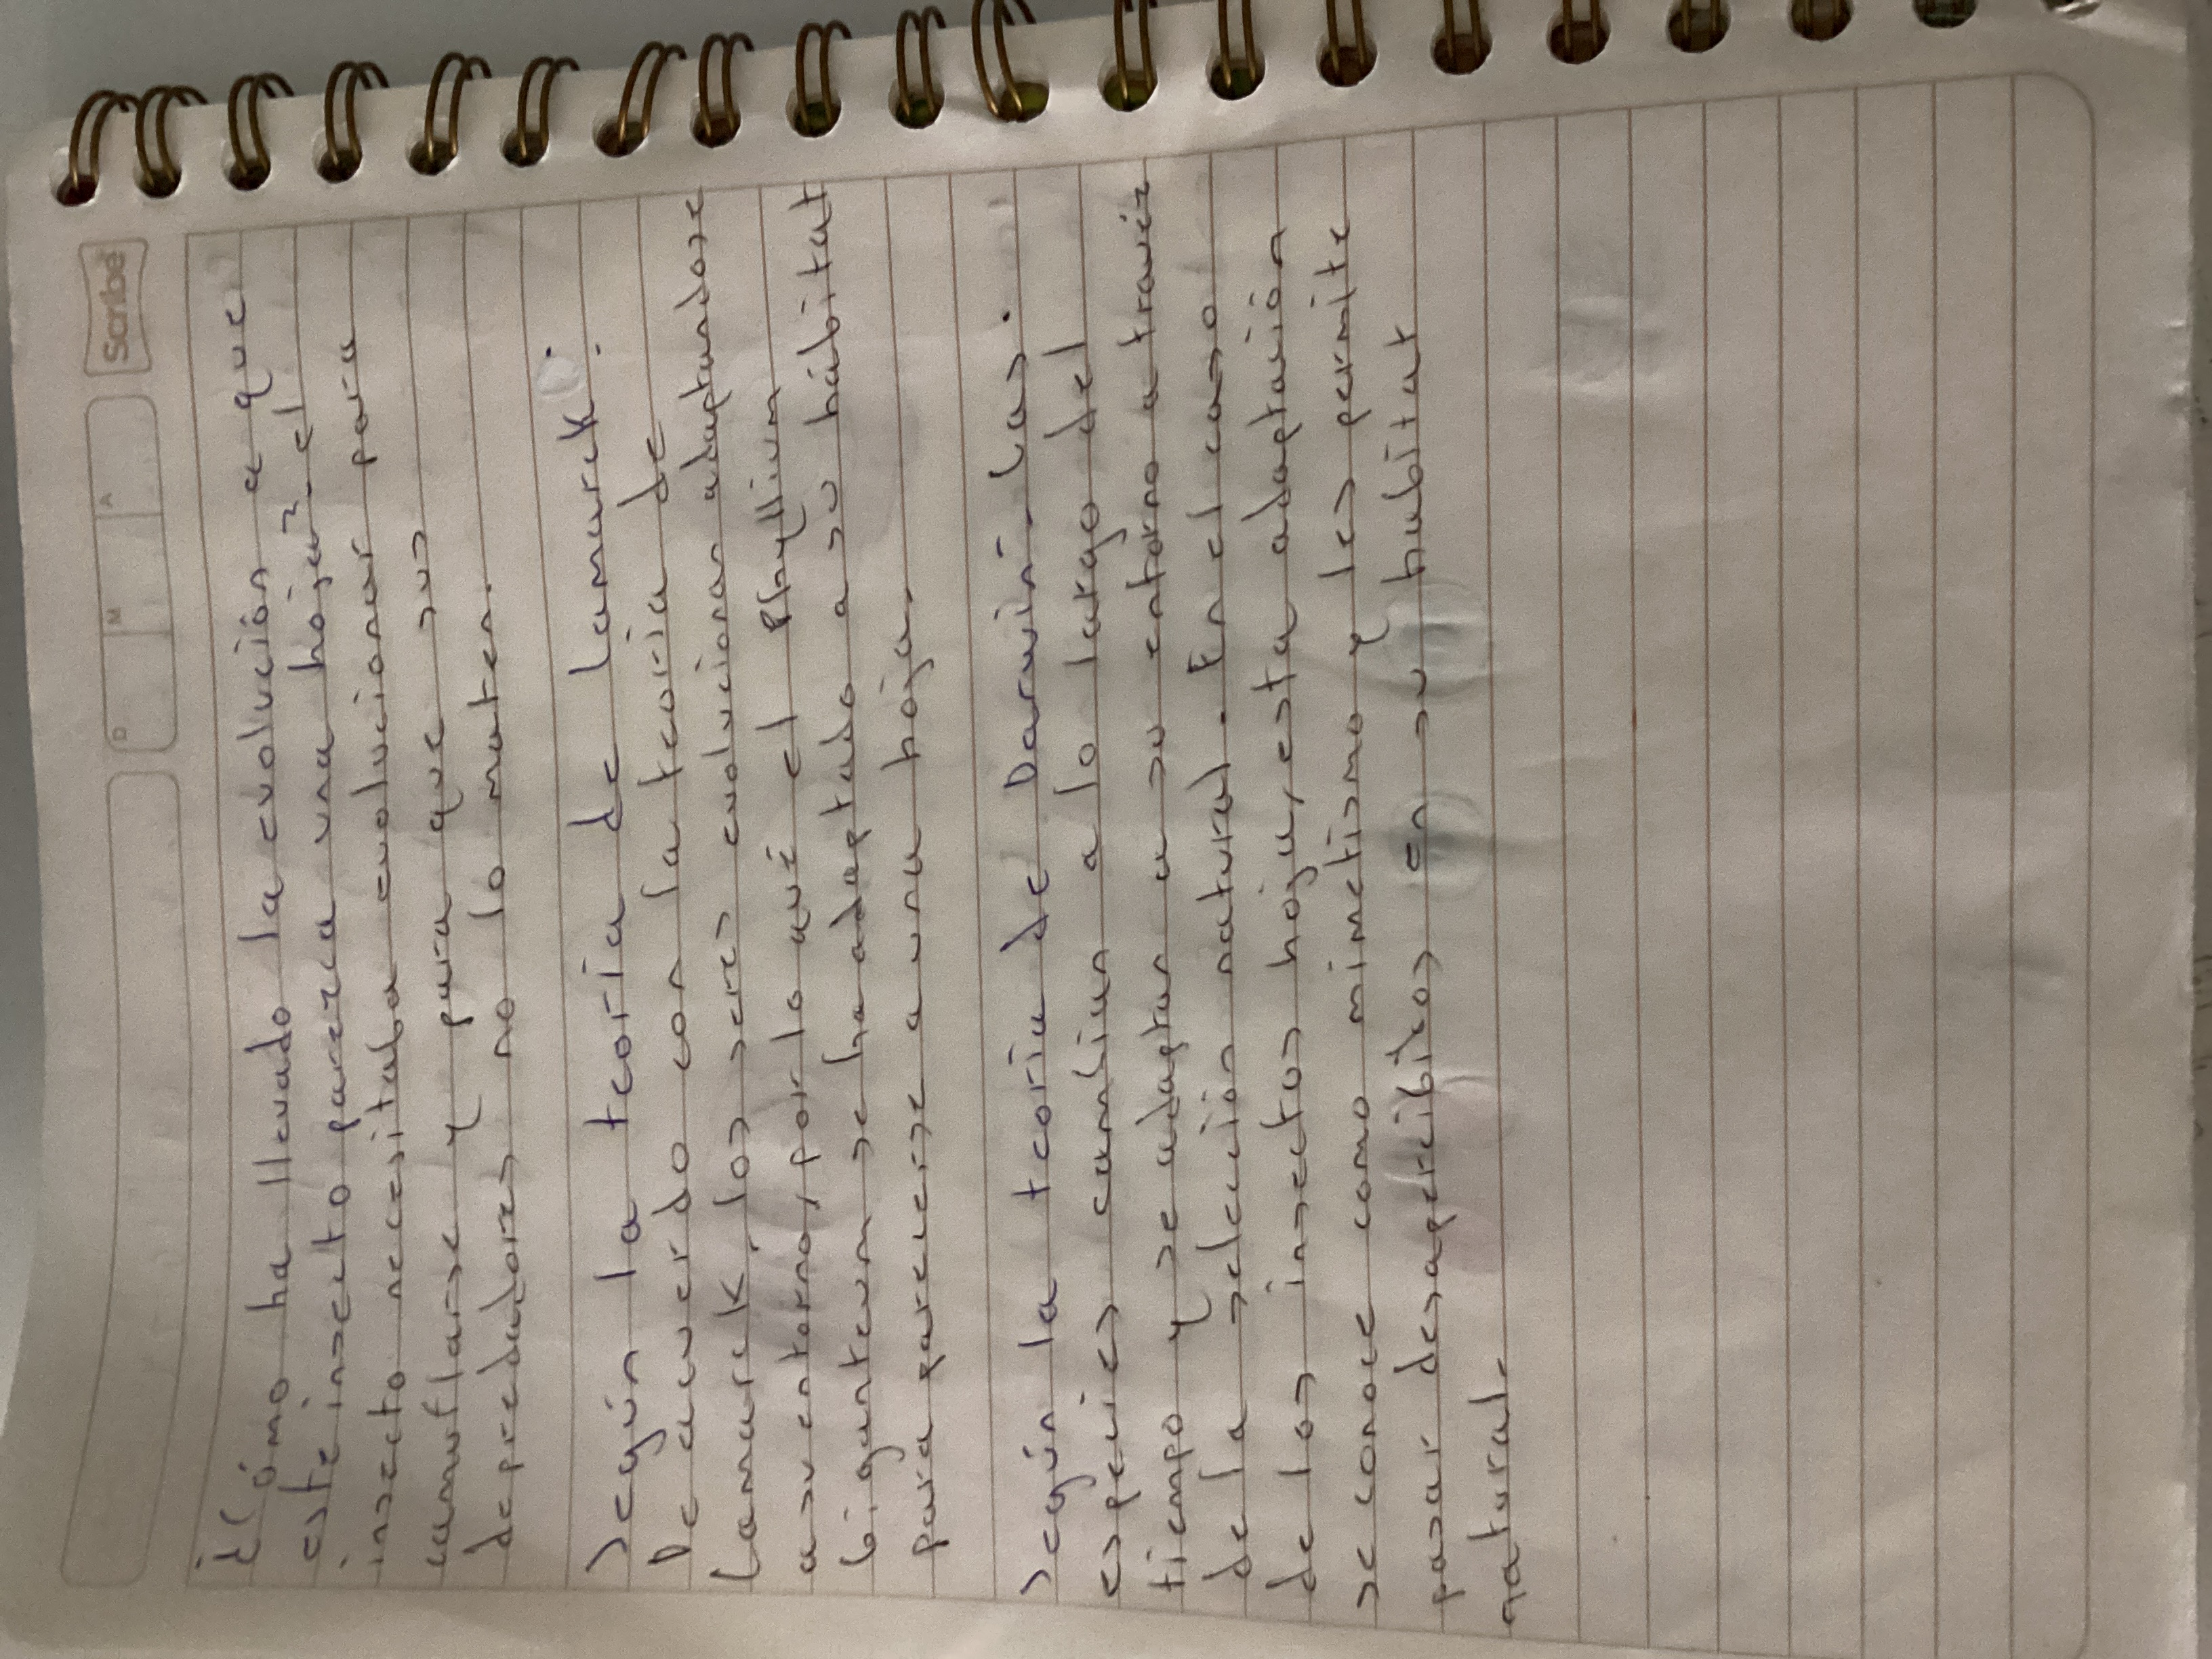 Scribe
D M A
¿Cómo ha llevado la evolución a que
este insecto parezca una hoja? el
insecto necesitaba evolucionar para
camuflarse y para que sus
depredadores no lo maten.
Según la teoría de lamarck:
De acuerdo con la teoria de
Lamarck, los seres evolucionan adaptandose
a su entorno, por lo qué el Phyllium
biganteum se ha adaptado a su hábitat
para parecerse a una hoja.
Según la teoria de Darwin- Las
especies cambian a lo largo del
tiempo y se adaptan a su entorno a través
de la selección natural. En el caso
de los insectos hoja, esta adaptación
se conoce como mimetismo y les permite
pasar desapercibidos en su habitat
natural.